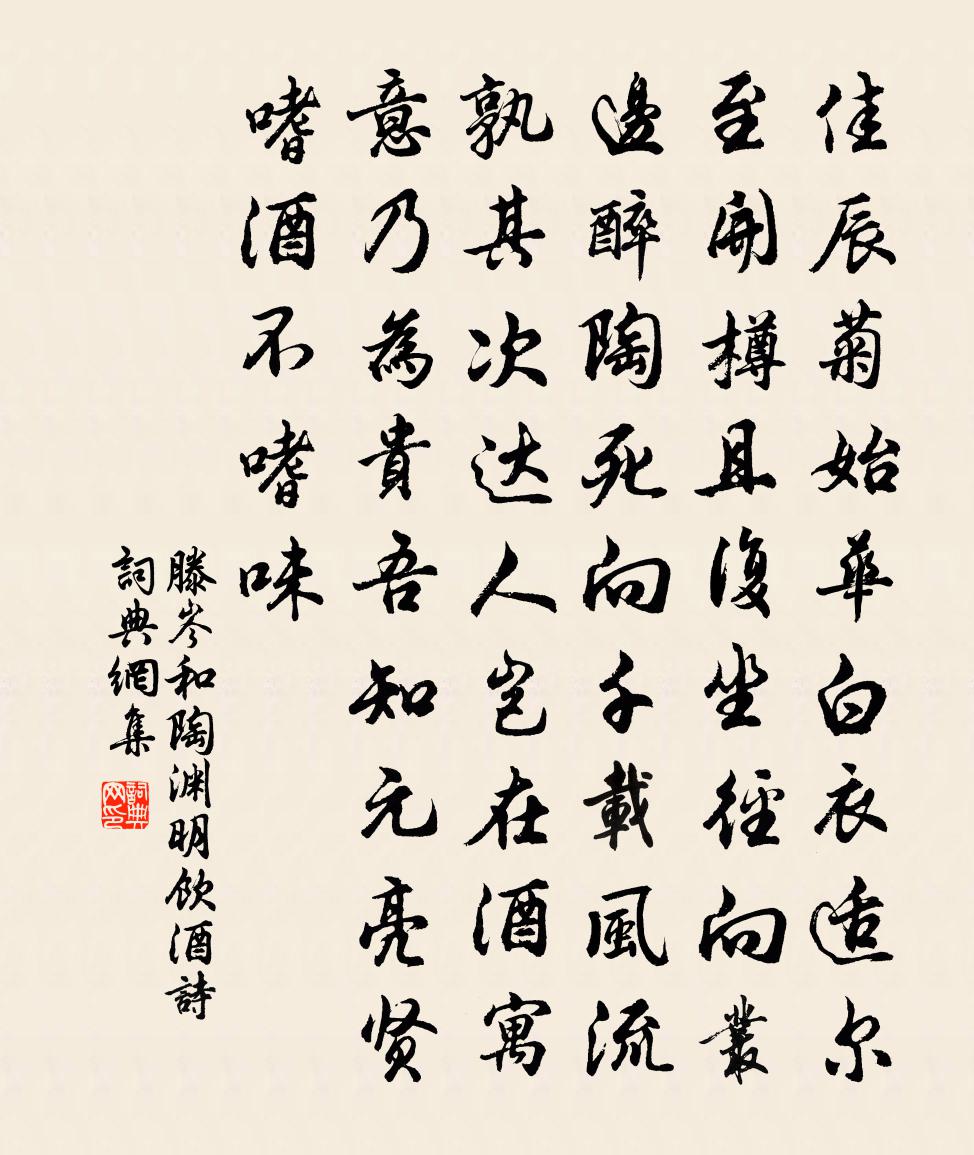 佳辰菊始華白衣适尔
至開樽且復坐径向叢
邊醉陶死向千載風流
孰其次达人岂在酒寓
意乃為貴吾知元亮贤
嗜酒不嗜味
滕岑和陶渊明饮酒詩
詞典網集
詞典网印